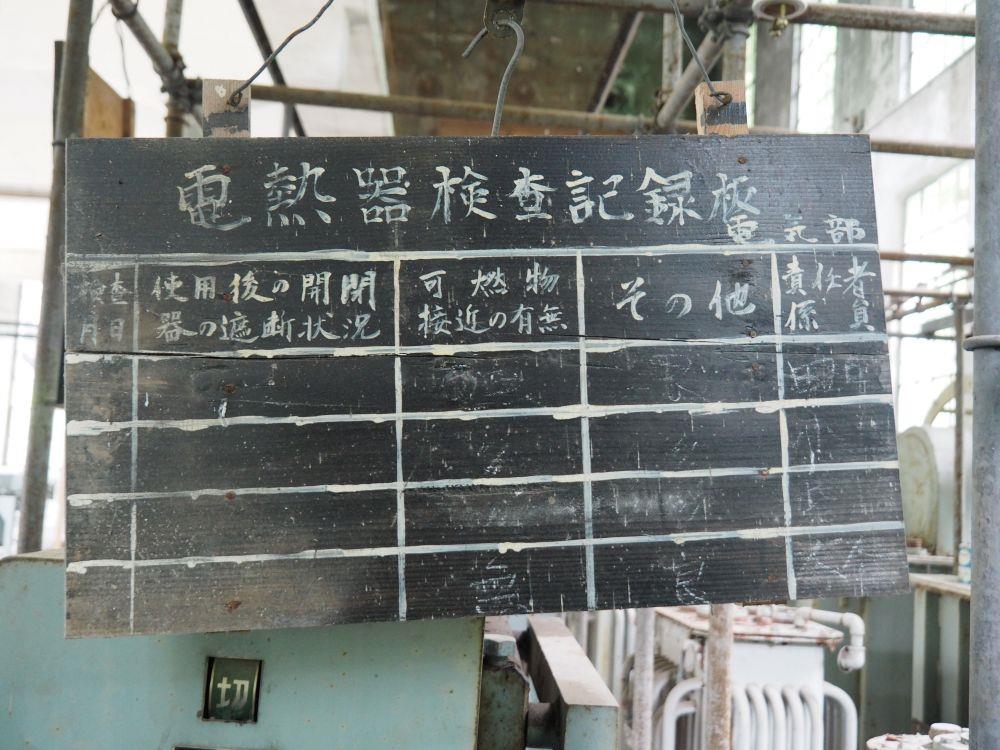 電熱器検査記録板
電気部
検査月日
使用後の開閉
器の遮断状況
可燃物
接近の有無
その他
責任者
係員
切